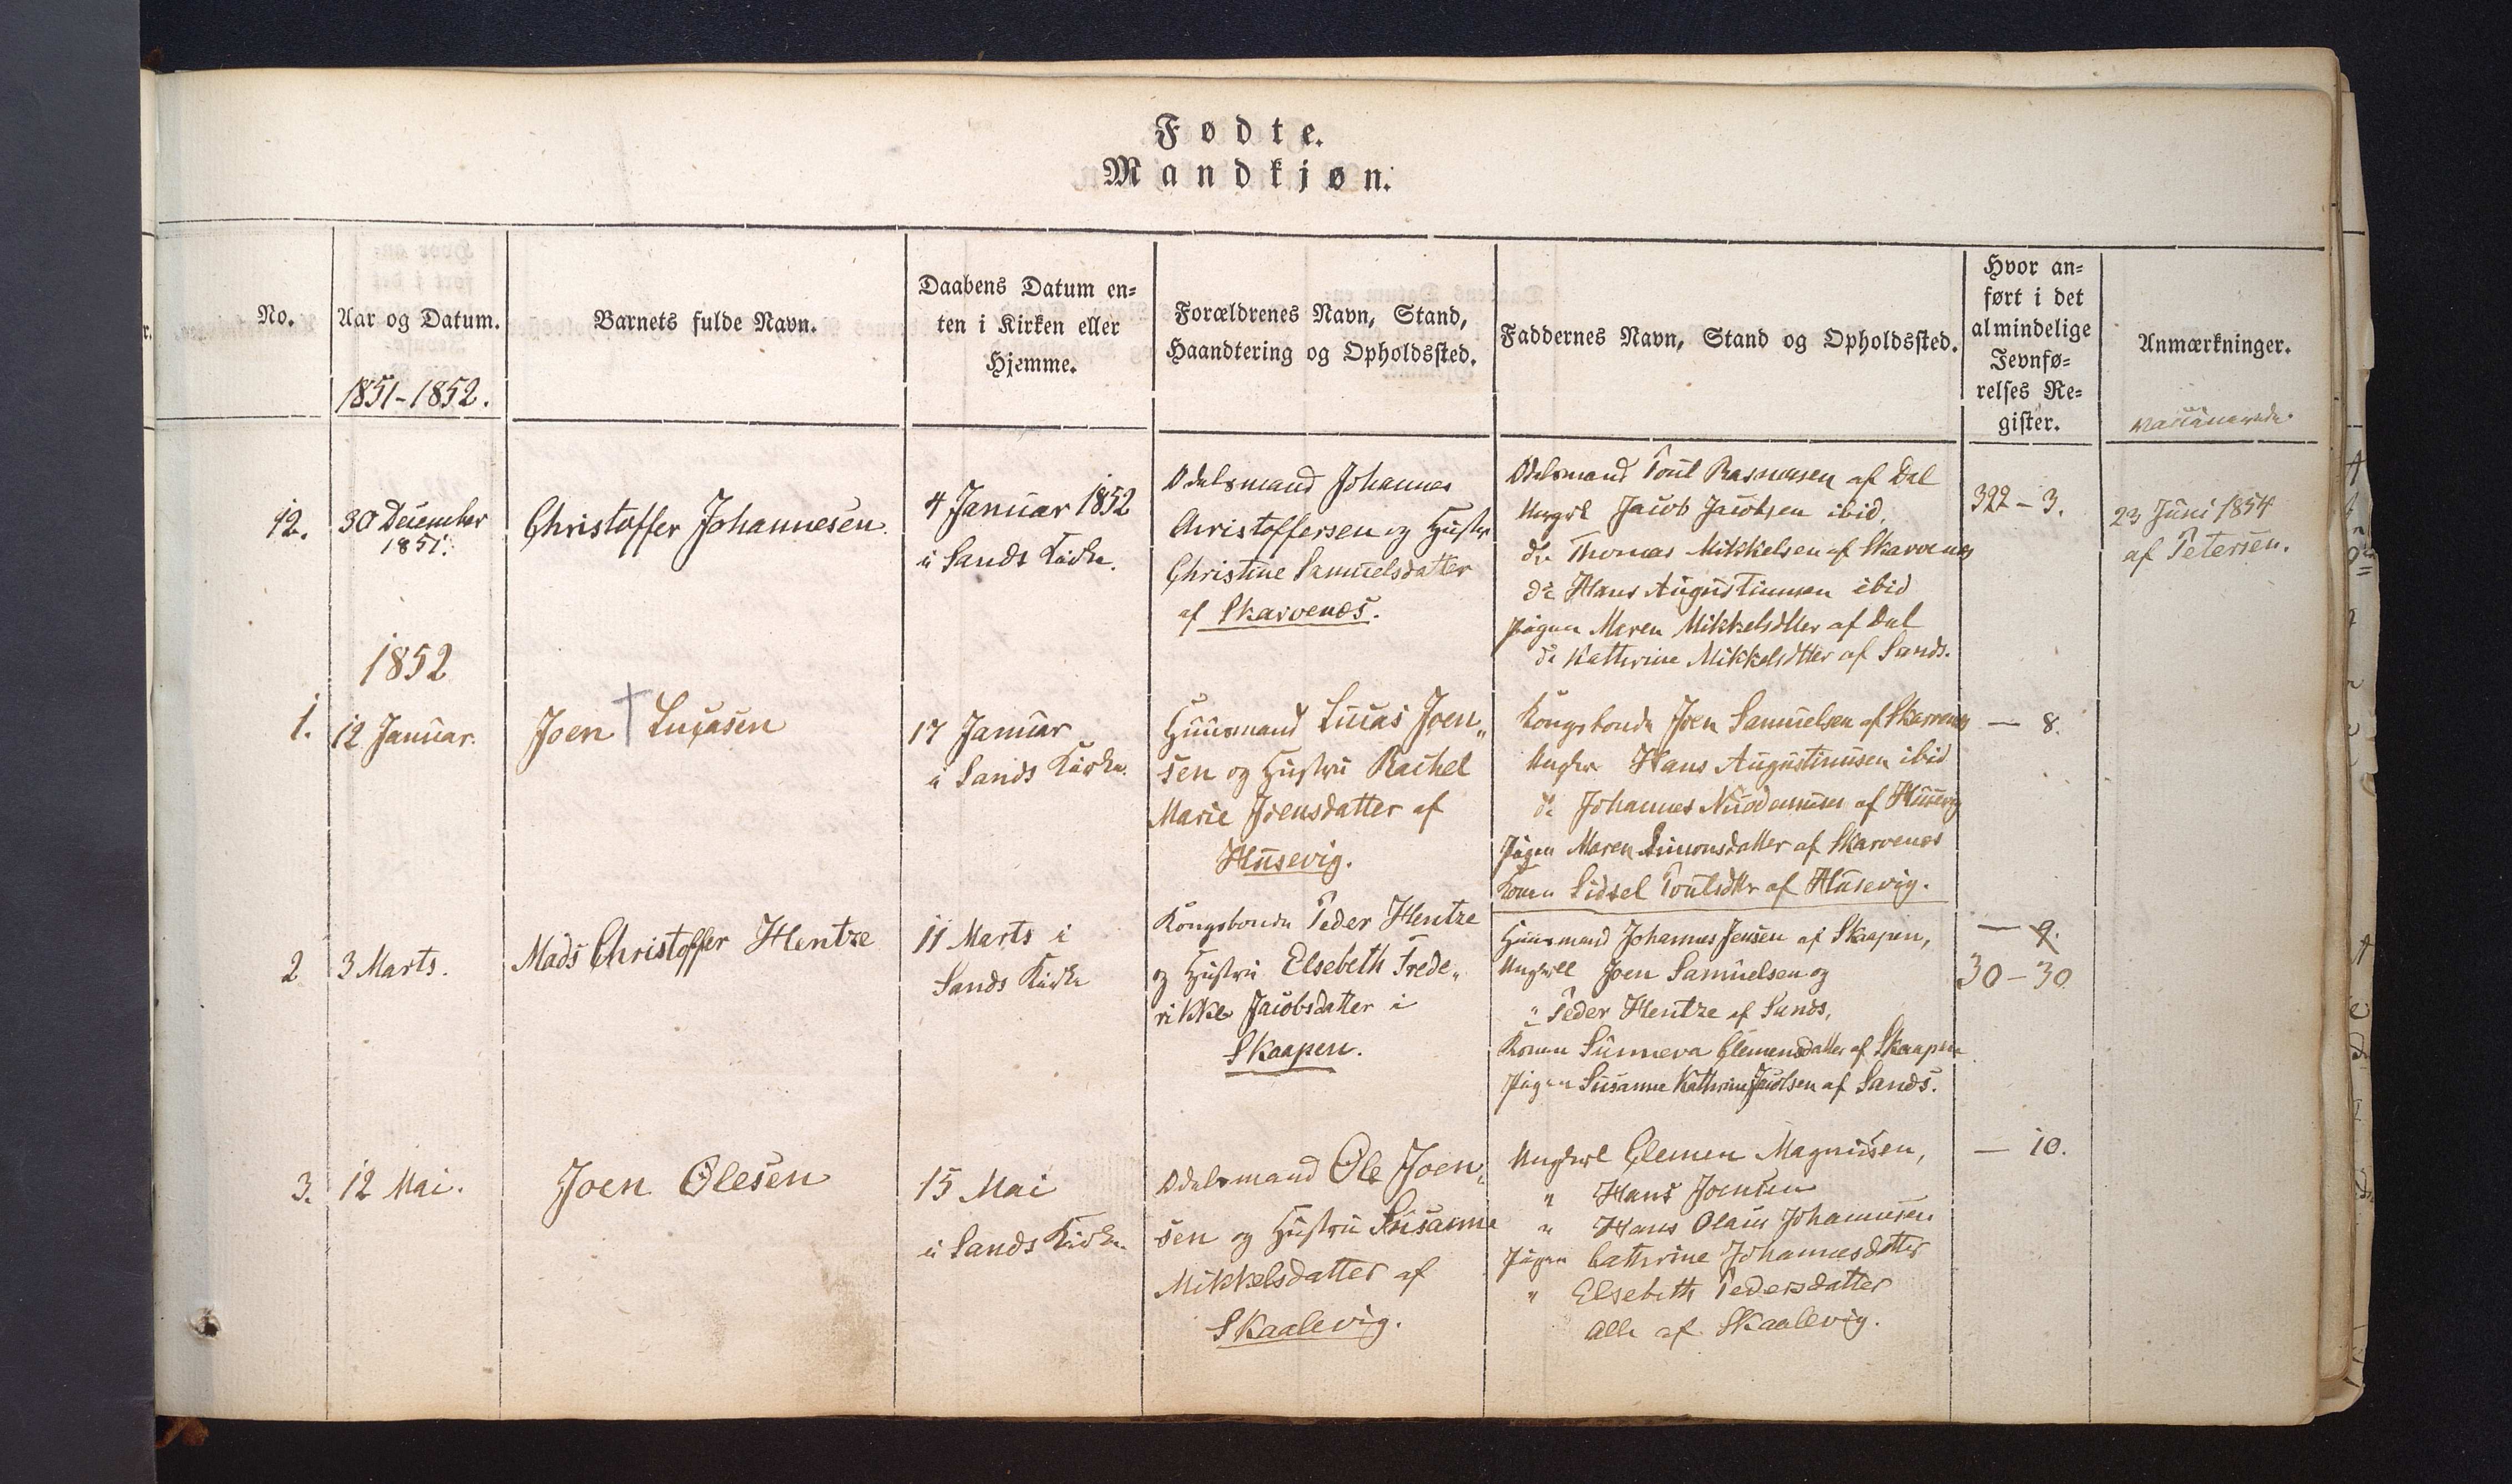 Fødte.
Mandkjøn.
No.
Aar og Datum.
1851-1852.
Barnets fulde Navn.
Daabens Datum en=
ten i Kirken eller
Hjemme.
Forældrenes Navn, Stand,
Haandtering og Opholdssted.
Faddernes Navn, Stand og Opholdssted.
Hvor an=
ført i det
almindelige
Jevnfø=
relses Re=
gister.
Anmærkninger.
12.
30 December
1851.
Christoffer Johannesen
4 Januar 1852
i Sands Kirke.
Odelsmand Johannes
Christoffersen og Hustr
Christine Samuelsdatter
af Skarvenæs.
Odelsmand Poul Rasmusen af Dal
Ungkl Jacob Jacobsen ibid.
do Thomas Mikkelsen af Skarvenæs
do Hans Augustinusen ibid
Pigen Maren Mikkelsdtter af Dal
do Kathrine Mikkelsdtter af Sands.
392 - 3.
23 Juni 1854
af Petersen.
1852
1.
12 Januar.
Joen † Lucasen
17 Januar
i Sands Kirke.
Huusmand Lucas Joen„
sen og Hustru Rachel
Marie Joensdatter af
Husevig.
Kongsbonde Joen Samuelsen af Skarvenæs
Hans Augustinusen ibid
do Johannes af Husevig
Pigen Maren Simonsdatter af Skarvenæs
Konen Sidsel Poulsdtr af Husevig.
— 8.
2
3 Marts.
Mads Christoffer Hentze
11 Marts i
Sands Kirke
Kongsbonde Peder Hentze
og Hustru Elsebeth Frede„
rikke Jacobsdatter i
Skaapen.
Huusmand Johannes Jensen af Skaapen,
Ungkrll Joen Samuelsen og
" Peder Hentze af Sands,
Konen Sunneva Clemensdatter af Skaapen
Pigen Susanne Kathrine Jacobsen af Sands.
— 9.
30 - 30
3.
12 Mai.
Joen Olesen
15 Mai
i Sands Kirke.
Odelsmand Ole Joen„
sen og Hustru Susanne
Mikkelsdatter af
Skaalevig.
Ungkrl Clemen Magnusen,
" Hans Joensen
" Hans Olaus Johannesen
Pigen Cathrine Johannesdatter
" Elsebeth Pedersdatter
alle af Skaalevig.
— 10.